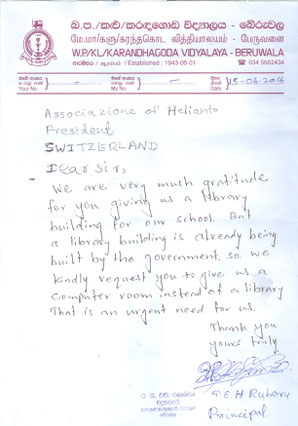 බ.ප./කළු/කරඳගොඩ විද්‍යාලය - බේරුවල
மே.மா/களு/கரந்தகொட வித்தியாலயம் - பேருவளை
W.P/KL/KARANDHAGODA VIDYALAYA - BERUWALA
ආරම්භය / ஆரம்பம் / Established : 1943-05-01
☎ 034 5682434
Your No
My No
Date
15-06-2016
Associazione of Helianto
President
SWITZERLAND
Dear Sir,
We are very much gratitude
for you giving us a library
building for our school. But
a library building is already being
built by the government. so. we
kindly request you to give us a
Computer room instead of a library
That is an urgent need for us.
Thank you
yours truly
Principal